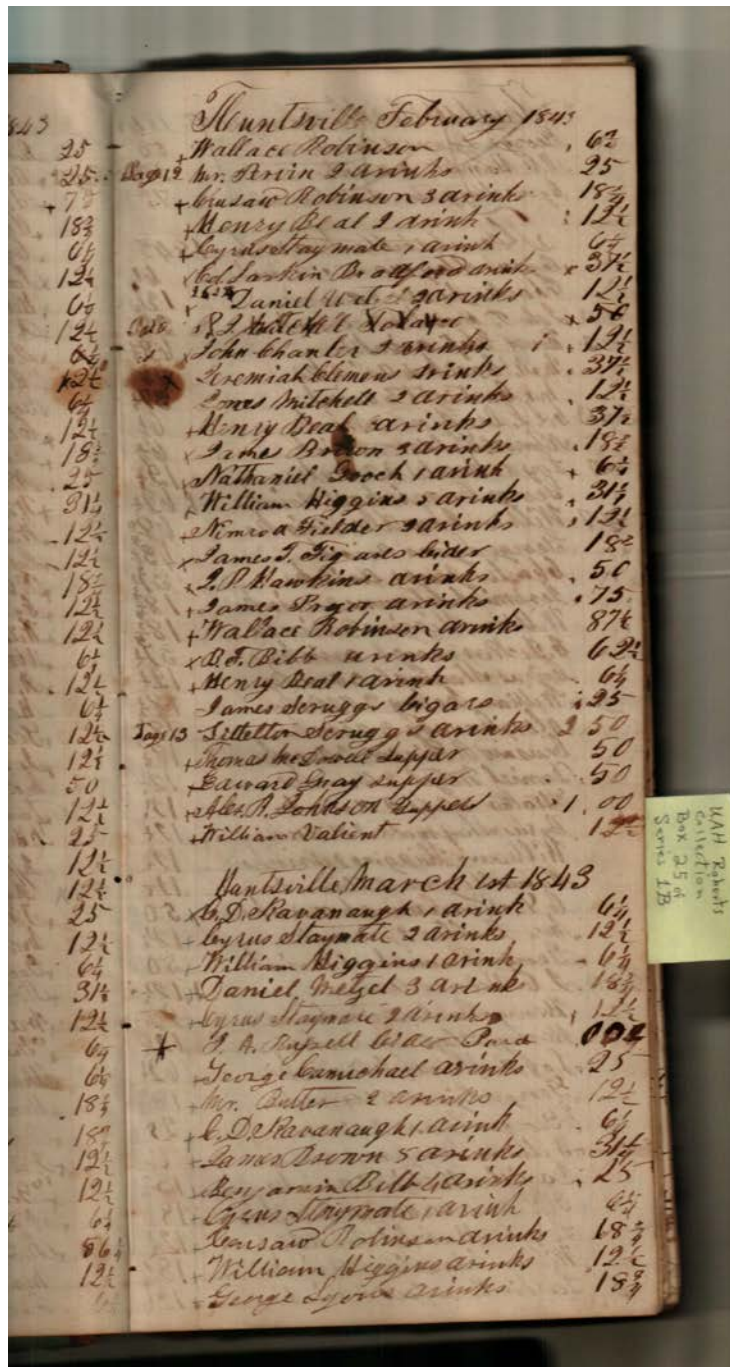 1843
25
25
18¾
6¼
12½
6¼
12½
6¼
12½
6¼
12½
18¾
25
31¼
12½
12½
18¾
12½
12½
6¼
12½
6¼
12½
12½
50
12½
25
12½
12½
25
12½
6¼
31¼
12½
6¼
6¼
18¾
18¾
12½
12½
6¼
12½
Huntsville February 1843
+ Wallace Robinson 6¼
Page 12 Mr. 2 drinks 25
+ Robinson 3 drinks 18¾
+ Henry Beal 2 drink 12½
+ Cyrus Staymate 1 drink 6¼
+ Col Larkin Bradford drink 37½
x Daniel 2 drinks 12½
x 50
John Chanler 2 drinks 12½
x Jeremiah Clemens drinks 37½
James Mitchell 2 drinks 12½
+ Henry Beal drinks 37½
+ James Brown 3 drinks 18¾
+ Nathaniel Gooch 1 drink 6¼
+ William Higgins 5 drinks 31¼
+ Nimrod Fielder 2 drinks 12½
x James T. Figures Cider 18¾
x Hawkins drinks 50
+ James Pryor drinks 75
+ Wallace Robinson drinks 87½
x B.F. Bibb drinks 62½
+ Henry Beal 1 drink 6¼
James Scruggs Cigars 25
Page 13 Littelton Scruggs drinks 2 50
+ Thomas McDowell supper 50
+ Edward Gray supper 50
+ Alex. R. Johnson Suppers 1.00
+ William Valient 12½
Huntsville March 1st 1843
x C. D. Kavanaugh 1 drink 6¼
Cyrus Staymate 2 drinks 12½
William Higgins 1 drink 6¼
Daniel Wetzel 3 drinks 18¾
Cyrus Staymate 2 drinks 12½
+ Cider Paid
George Camichael drinks 25
Mr. Butler 2 drinks 12½
C. D. Kavanaugh 1 drink 6¼
James Brown 5 drinks 31¼
Benjamin Bibb 4 drinks 25
Cyrus Staymate 1 drink 6¼
Robinson drinks 18¾
William Higgins drinks 12½
George Lyons drinks 18¾
UAH Roberts
Collection
Box 25d
Series 1B